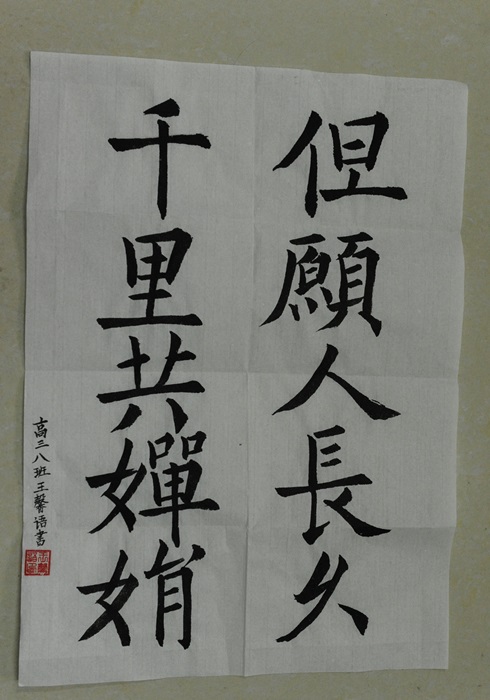 但願人長久
千里共嬋娟
高三八班王馨语書